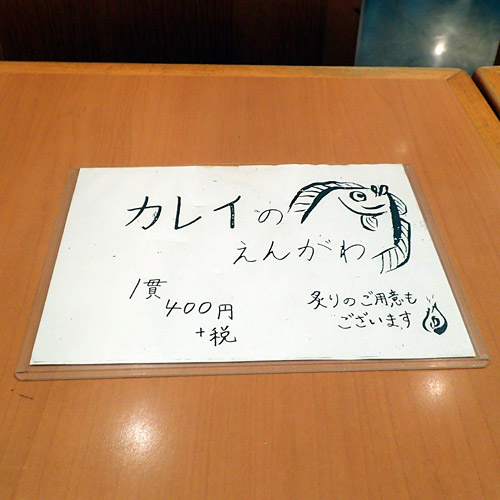 カレイの
えんがわ
1貫
400円
+税
炙りのご用意も
ございます